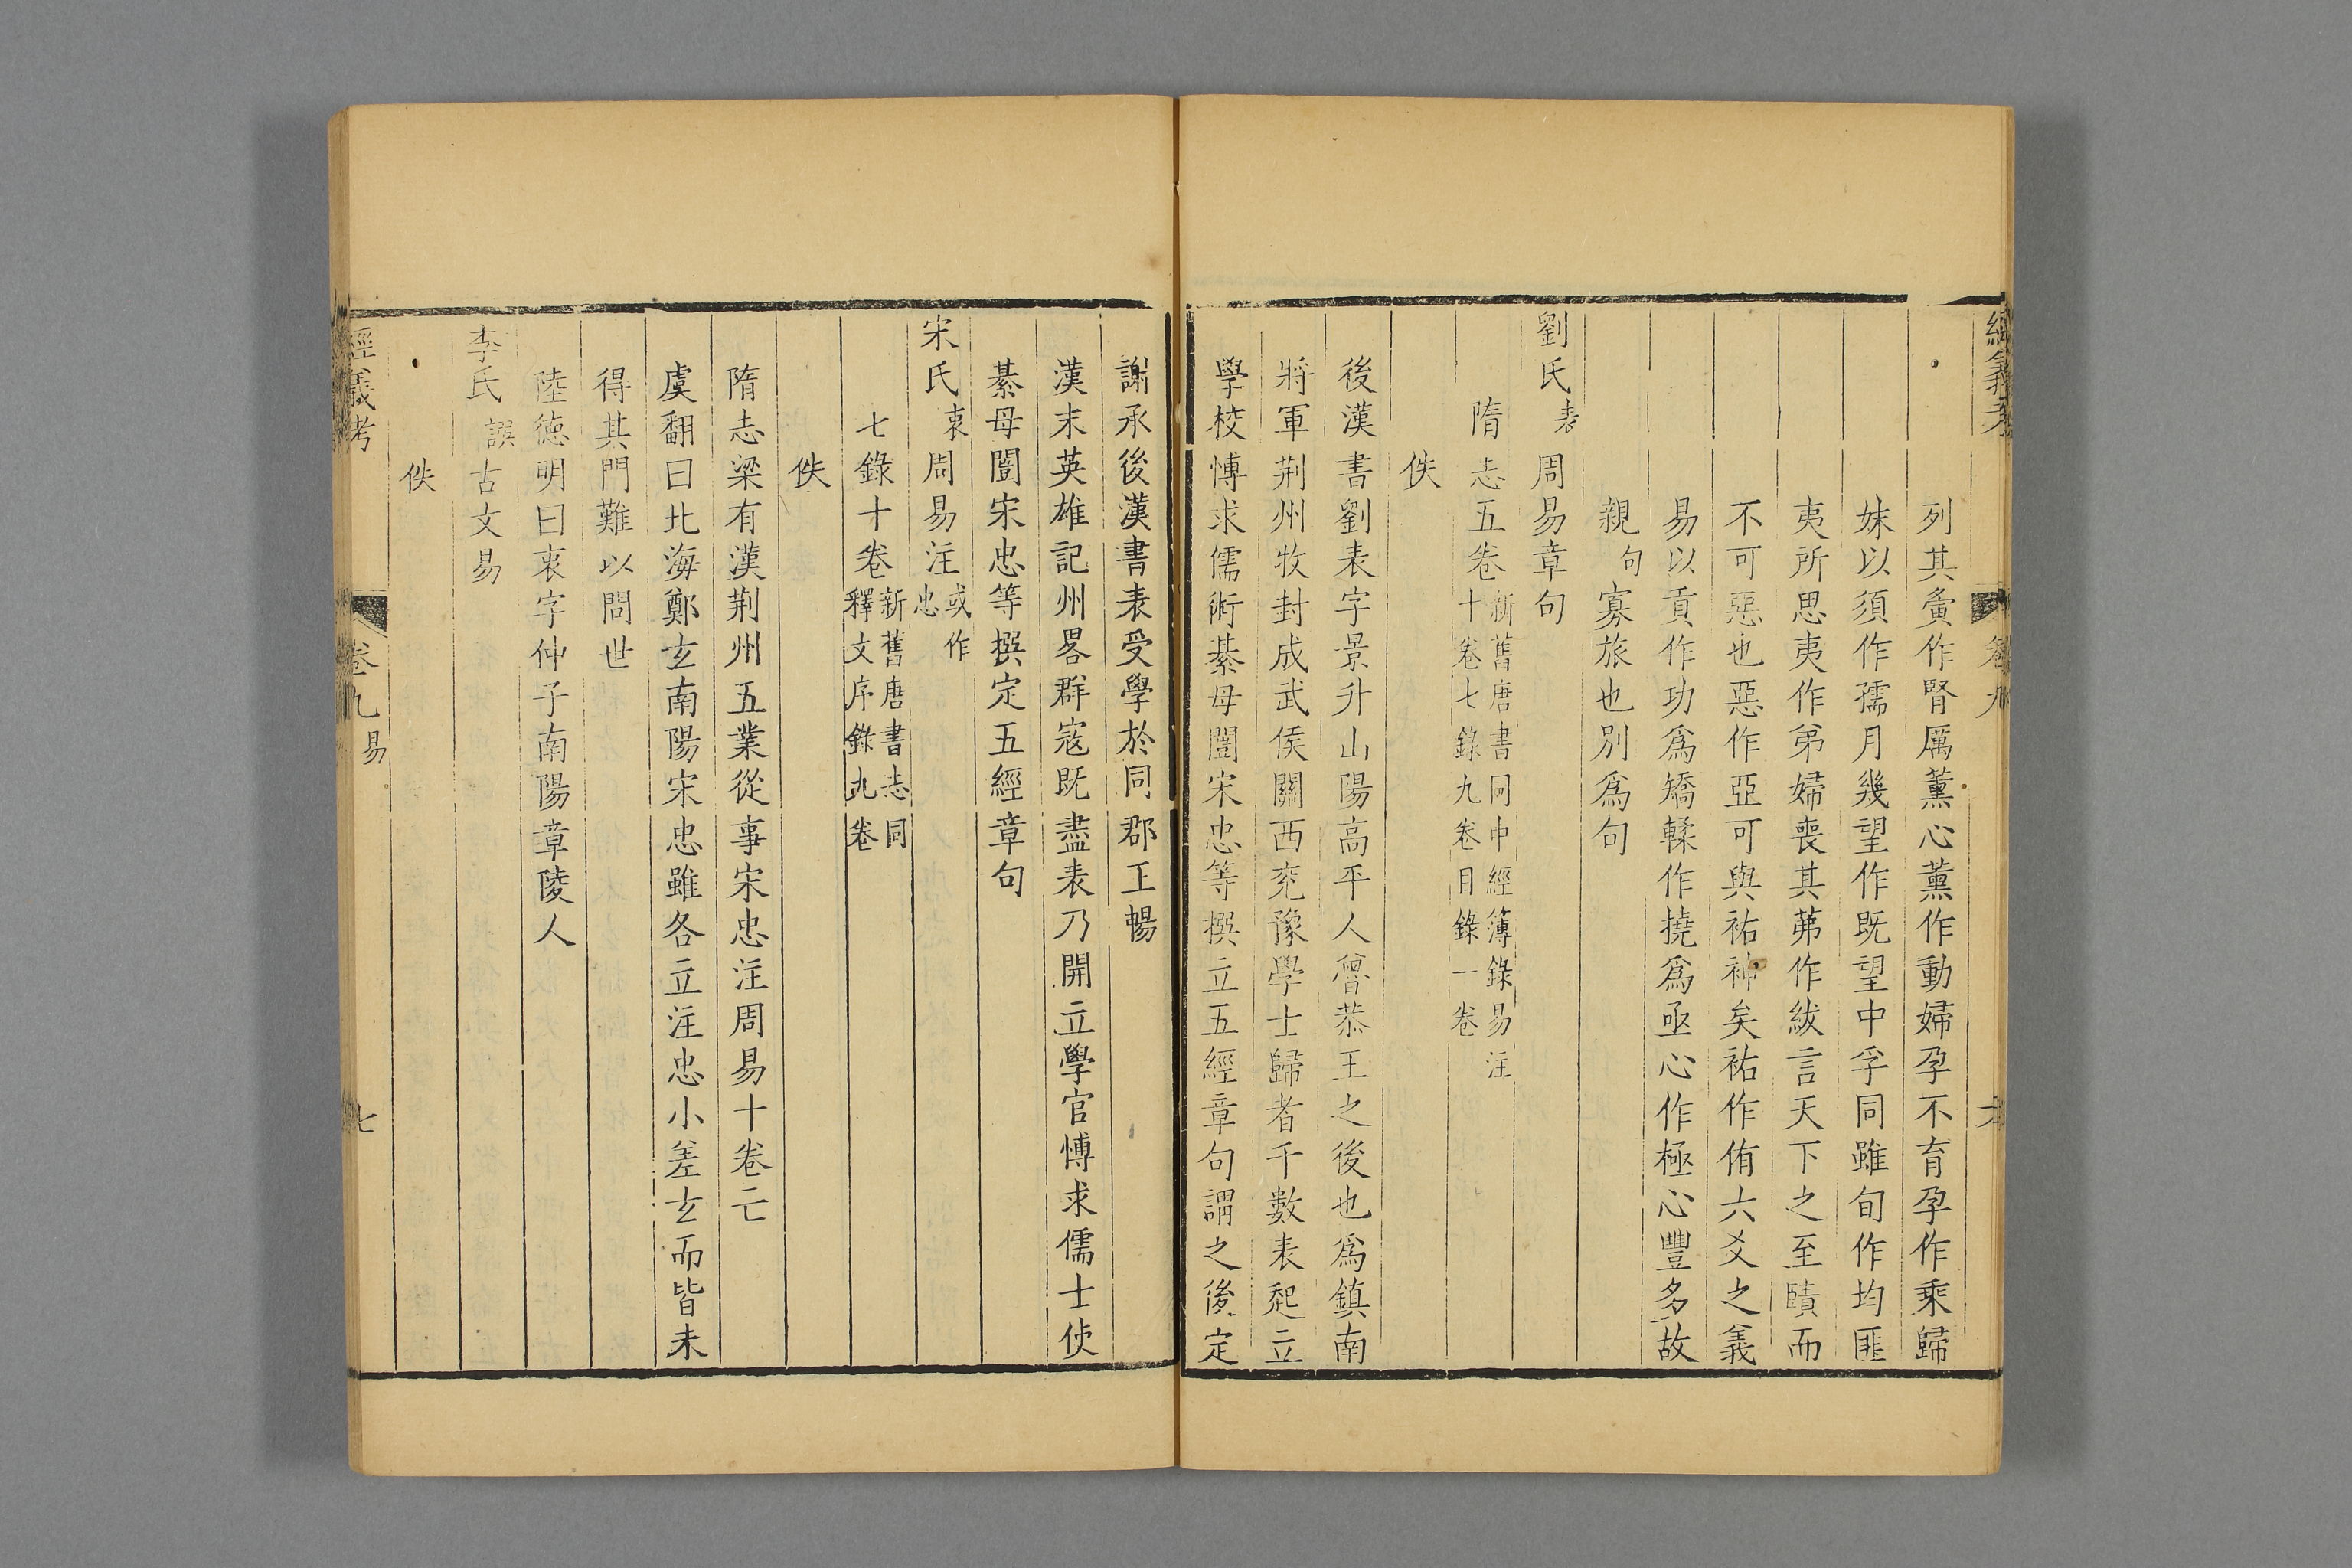 經義考
卷九
列其夤作腎厲薰心薰作動婦孕不育孕作乘歸
妹以須作孺月幾望作既望中孚同雖旬作均匪
夷所思夷作弟婦喪其茀作紱言天下之至賾而
不可惡也惡作亞可與祐神矣祐作侑六爻之義
易以貢作功爲矯輮作撓爲亟心作極心豐多故
親句寡旅也別爲句
劉氏表周易章句
隋志五卷新舊唐書同中經簿錄易注
十卷七錄九卷目錄一卷
佚
後漢書劉表字景升山陽高平人魯恭王之後也爲鎮南
將軍荆州牧封成武侯關西兖豫學士歸者千數表起立
學校愽求儒術綦母闓宋忠等撰立五經章句謂之後定
謝承後漢書表受學於同郡王暢
漢末英雄記州畧群寇既盡表乃開立學官愽求儒士使
綦母闓宋忠等撰定五經章句
宋氏衷周易注或作
忠
七錄十卷新舊唐書志同
釋文序錄九卷
佚
隋志梁有漢荆州五業從事宋忠注周易十卷亡
虞翻曰北海鄭玄南陽宋忠雖各立注忠小差玄而皆未
得其門難以問世
陸德明曰衷字仲子南陽章陵人
李氏譔古文易
佚
經義考
卷九 易
七